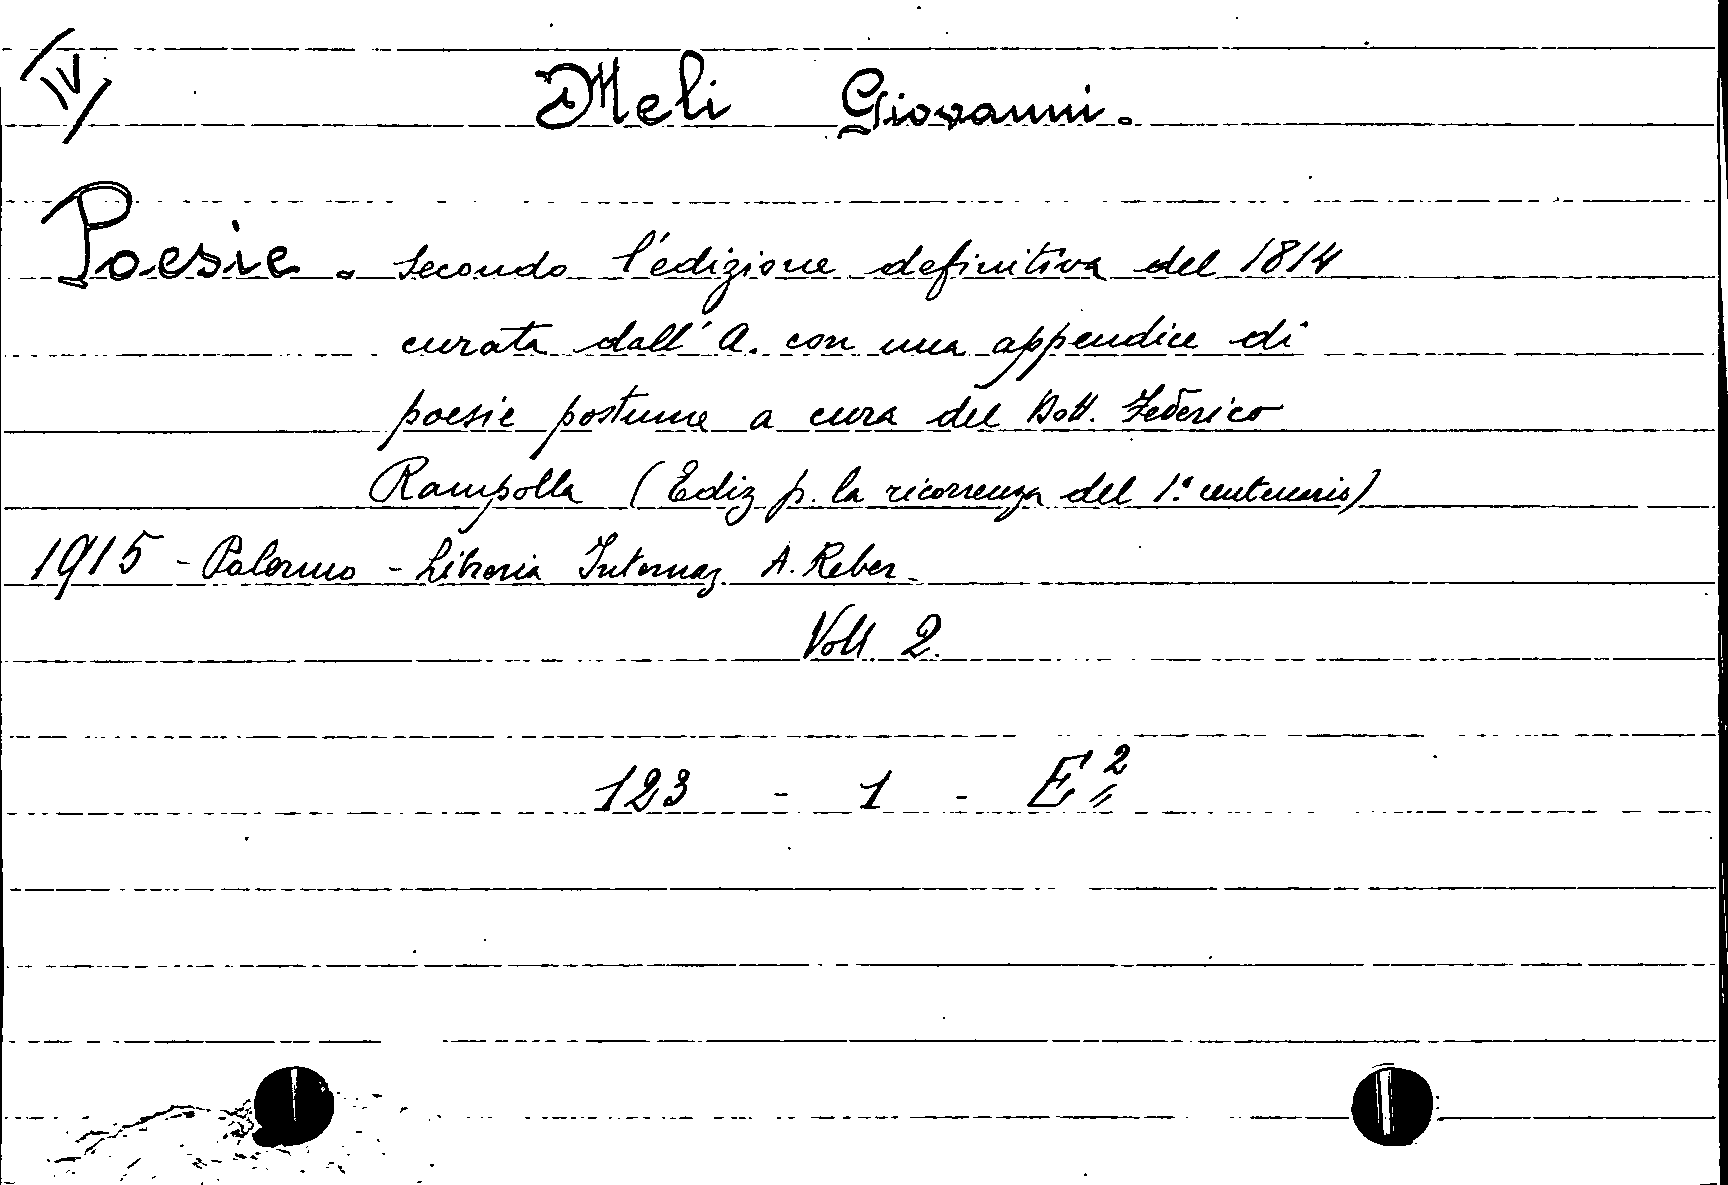 IV
Meli Giovanni.
Poesie. Secondo l'edizione definitiva del 1814
curata dall'A. con una appendice di
poesie postume a cura del Dott. Federico
Rampolla (Ediz p. la ricorrenza del 1º centenario)
1915 - Palermo - Libreria Internaz. A. Reber.
Voll. 2.
123 - 1 - E²